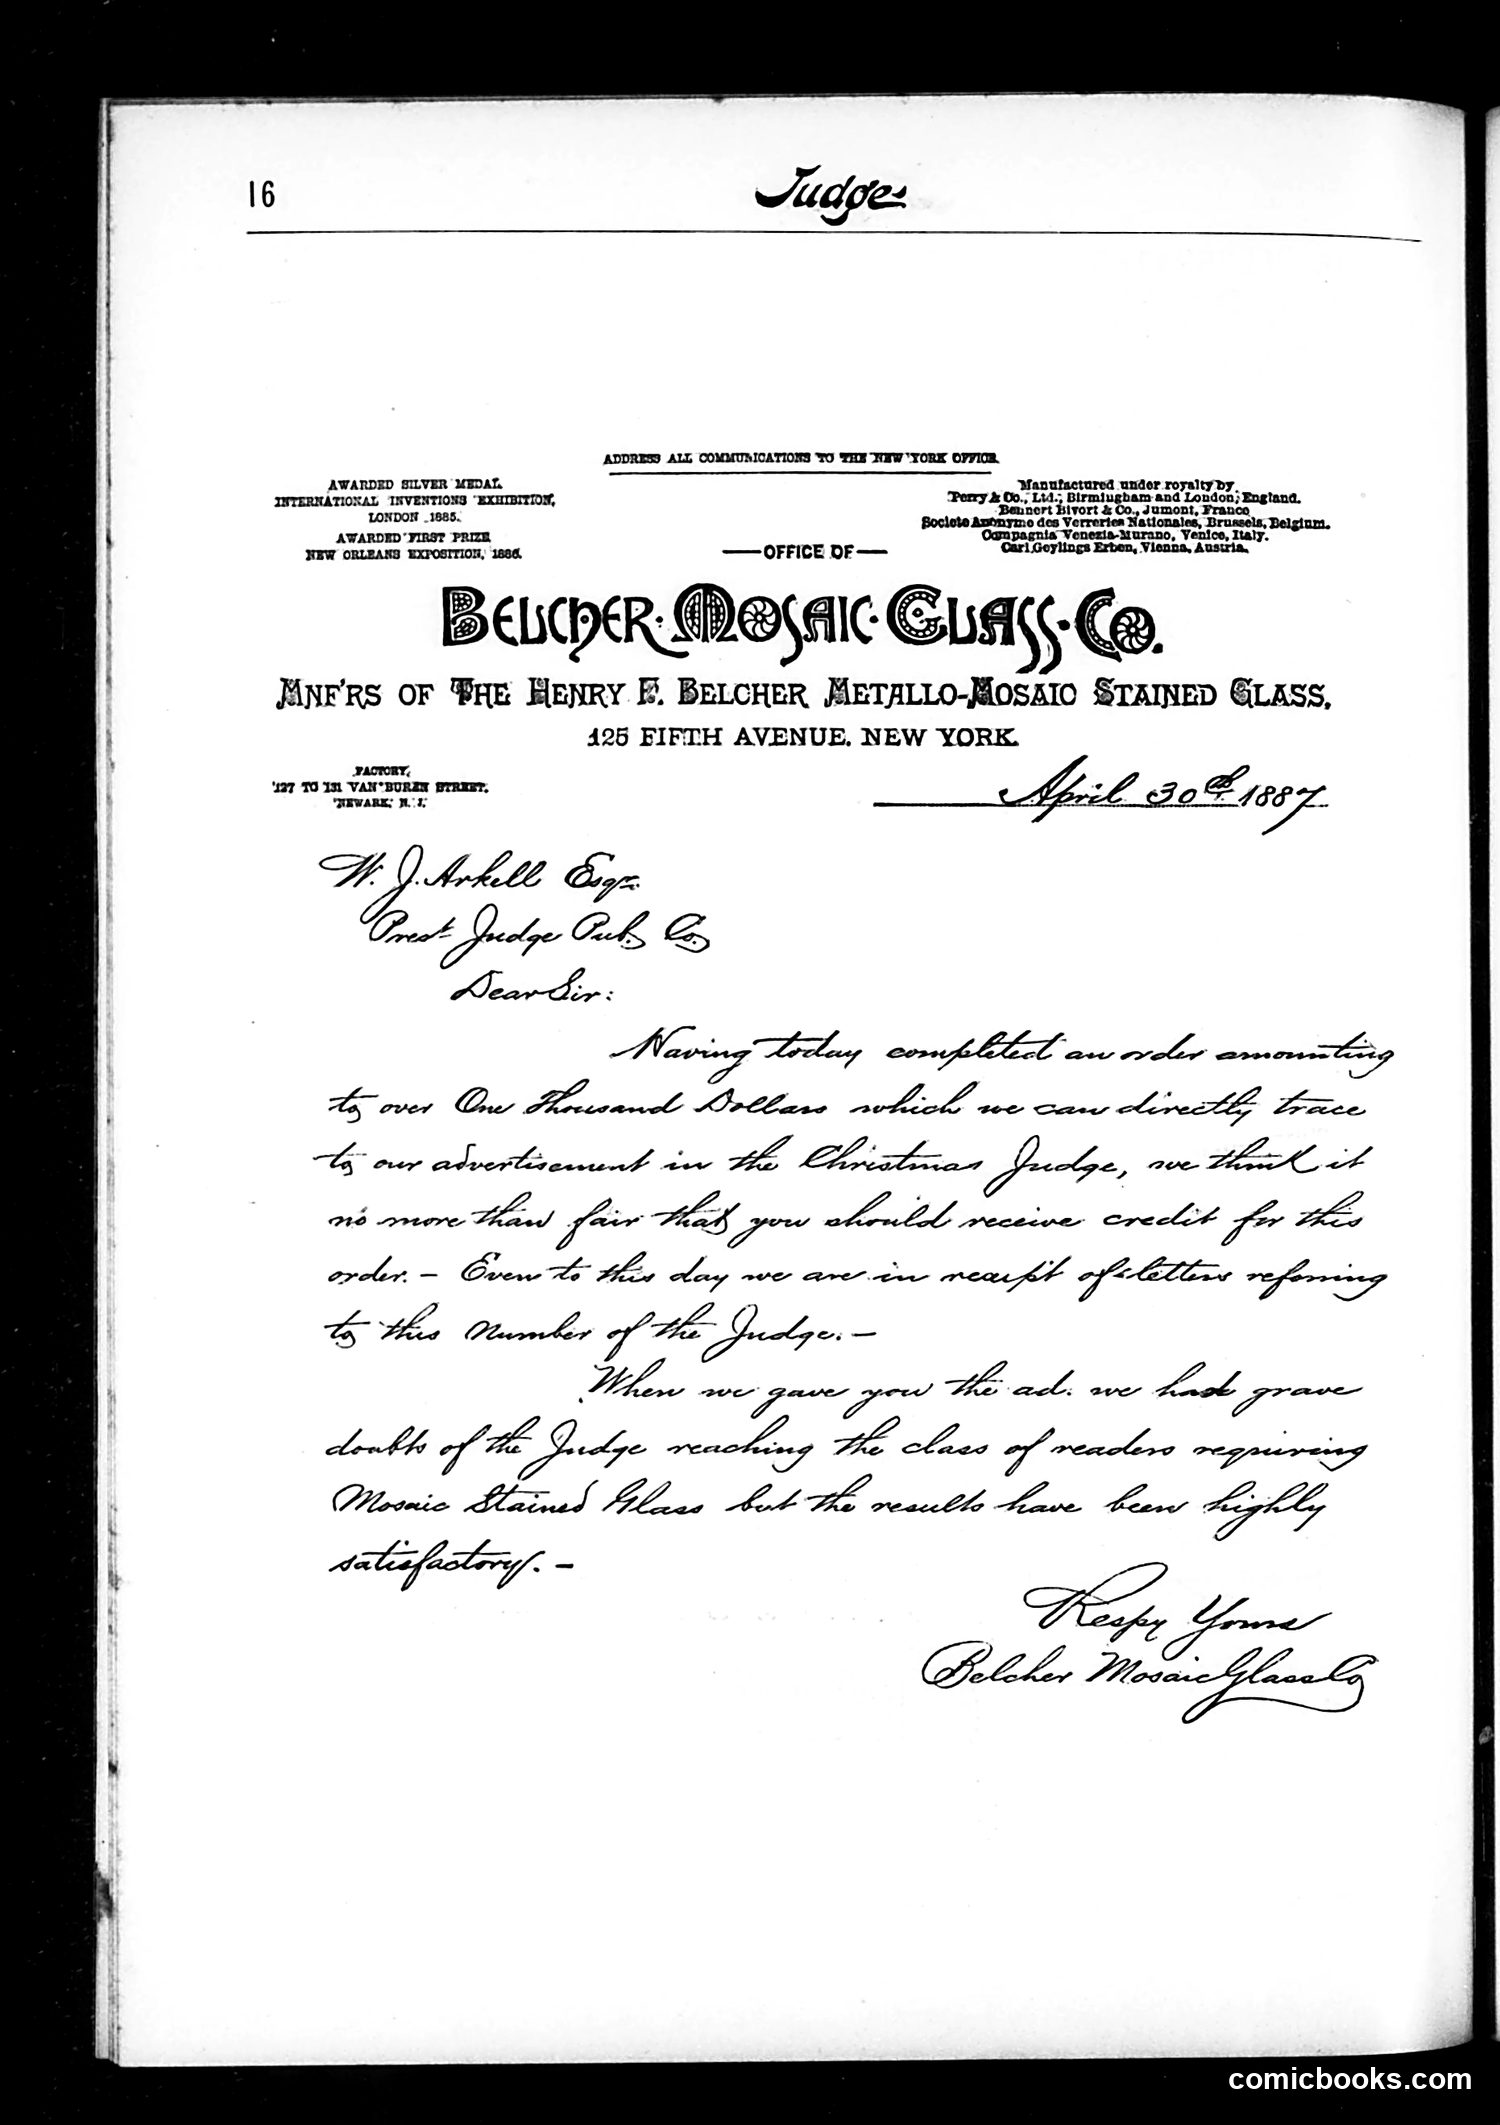 16
Judge
ADDRESS ALL COMMUNICATIONS TO THE NEW YORK OFFICE
AWARDED SILVER MEDAL
INTERNATIONAL INVENTIONS EXHIBITION,
LONDON 1885.
AWARDED FIRST PRIZE
NEW ORLEANS EXPOSITION, 1886.
Manufactured under royalty by
Perry & Co., Ltd.; Birmingham and London, England.
Bennert Bivort & Co., Jumont, France
Societe Anonyme des Verreries Nationales, Brussels, Belgium.
Compagnia Venezia-Murano, Venice, Italy.
Carl Geylings Erben, Vienna, Austria.
—OFFICE OF—
BELCHER·MOSAIC·GLASS·CO.
MNF'RS OF THE HENRY F. BELCHER METALLO-MOSAIC STAINED GLASS.
125 FIFTH AVENUE. NEW YORK.
FACTORY,
127 TO 131 VAN BUREN STREET.
NEWARK, N. J.
April 30th 1887
W. J. Arkell Esqr.
Prest Judge Pub. Co.
Dear Sir:
Having today completed an order amounting
to over One Thousand Dollars which we can directly trace
to our advertisement in the Christmas Judge, we think it
no more than fair that you should receive credit for this
order. – Even to this day we are in receipt of letters referring
to this number of the Judge. –
When we gave you the ad. we had grave
doubts of the Judge reaching the class of readers requiring
Mosaic Stained Glass but the results have been highly
satisfactory. –
Respy Yours
Belcher Mosaic Glass Co
comicbooks.com